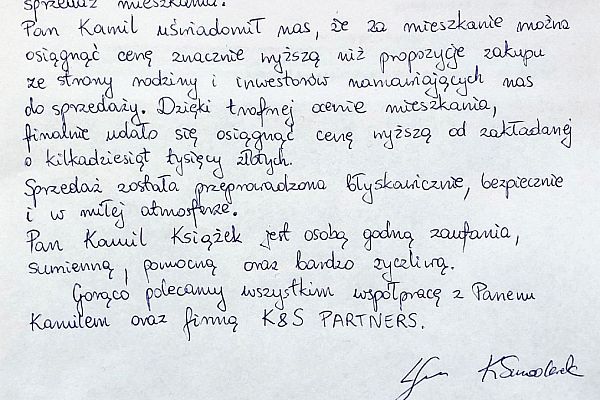 sprzedaż mieszkania.
Pan Kamil uświadomił nas, że za mieszkanie można
osiągnąć cenę znacznie wyższą niż propozycje zakupu
ze strony rodziny i inwestorów namawiających nas
do sprzedaży. Dzięki trafnej ocenie mieszkania,
finalnie udało się osiągnąć cenę wyższą od zakładanej
o kilkadziesiąt tysięcy złotych.
Sprzedaż została przeprowadzona błyskawicznie, bezpiecznie
i w miłej atmosferze.
Pan Kamil Książek jest osobą godną zaufania,
sumienną, pomocną oraz bardzo życzliwą.
Gorąco polecamy wszystkim współpracę z Panem
Kamilem oraz firmą K&S PARTNERS.